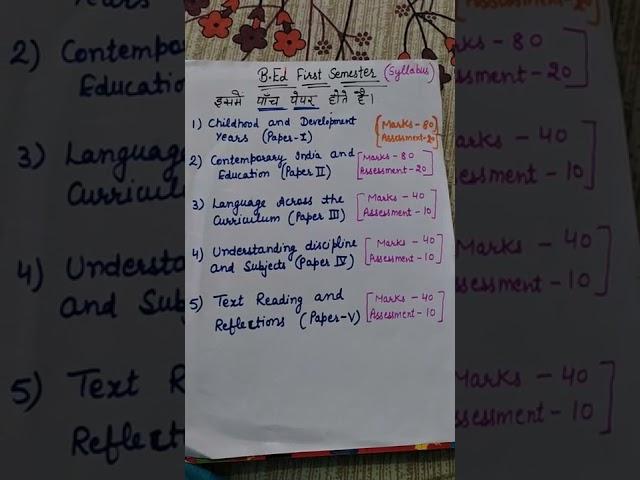 B.Ed First Semester (Syllabus)
इसमें पाँच पेपर होते है।
1) Childhood and Development [Marks - 80
Years (Paper-I) Assessment-20]
2) Contemporary India and [Marks - 80
Education (Paper II) Assessment-20]
3) Language Across the [Marks - 40
Curriculum (Paper III) Assessment-10]
4) Understanding discipline [Marks - 40
and Subjects (Paper IV) Assessment-10]
5) Text Reading and [Marks - 40
Reflections (Paper-V) Assessment-10]